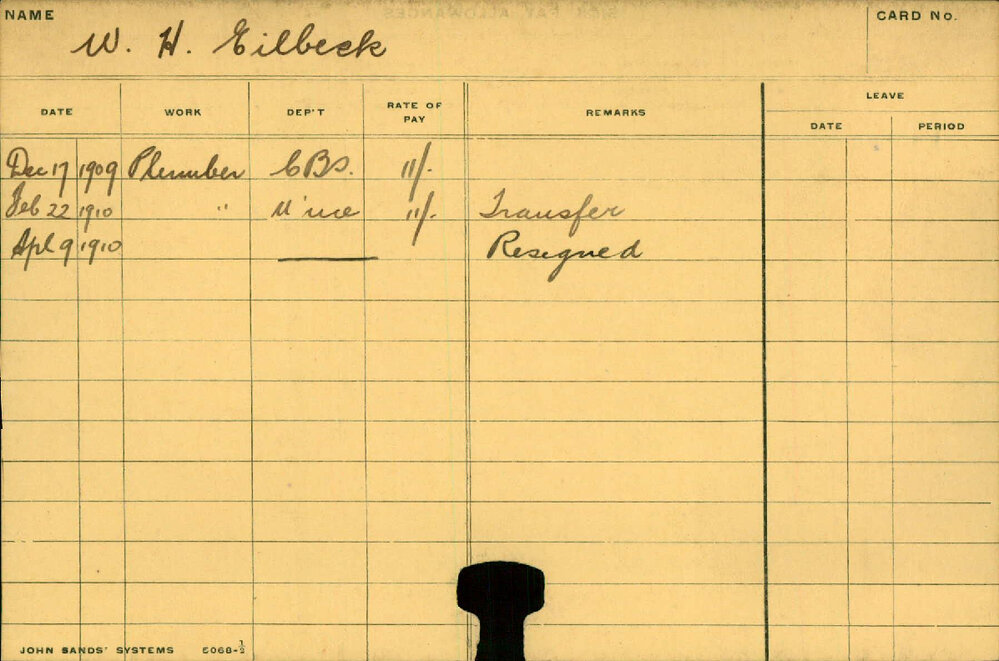 NAME
W. H. Eilbeck
CARD No.
DATE WORK DEP'T RATE OF PAY REMARKS LEAVE
DATE PERIOD
Dec 17 1909 Plumber CBS. 11/-
Feb 22 1910 " 11/- Transfer
Apl 9 1910 Resigned
JOHN SANDS' SYSTEMS 5068-½